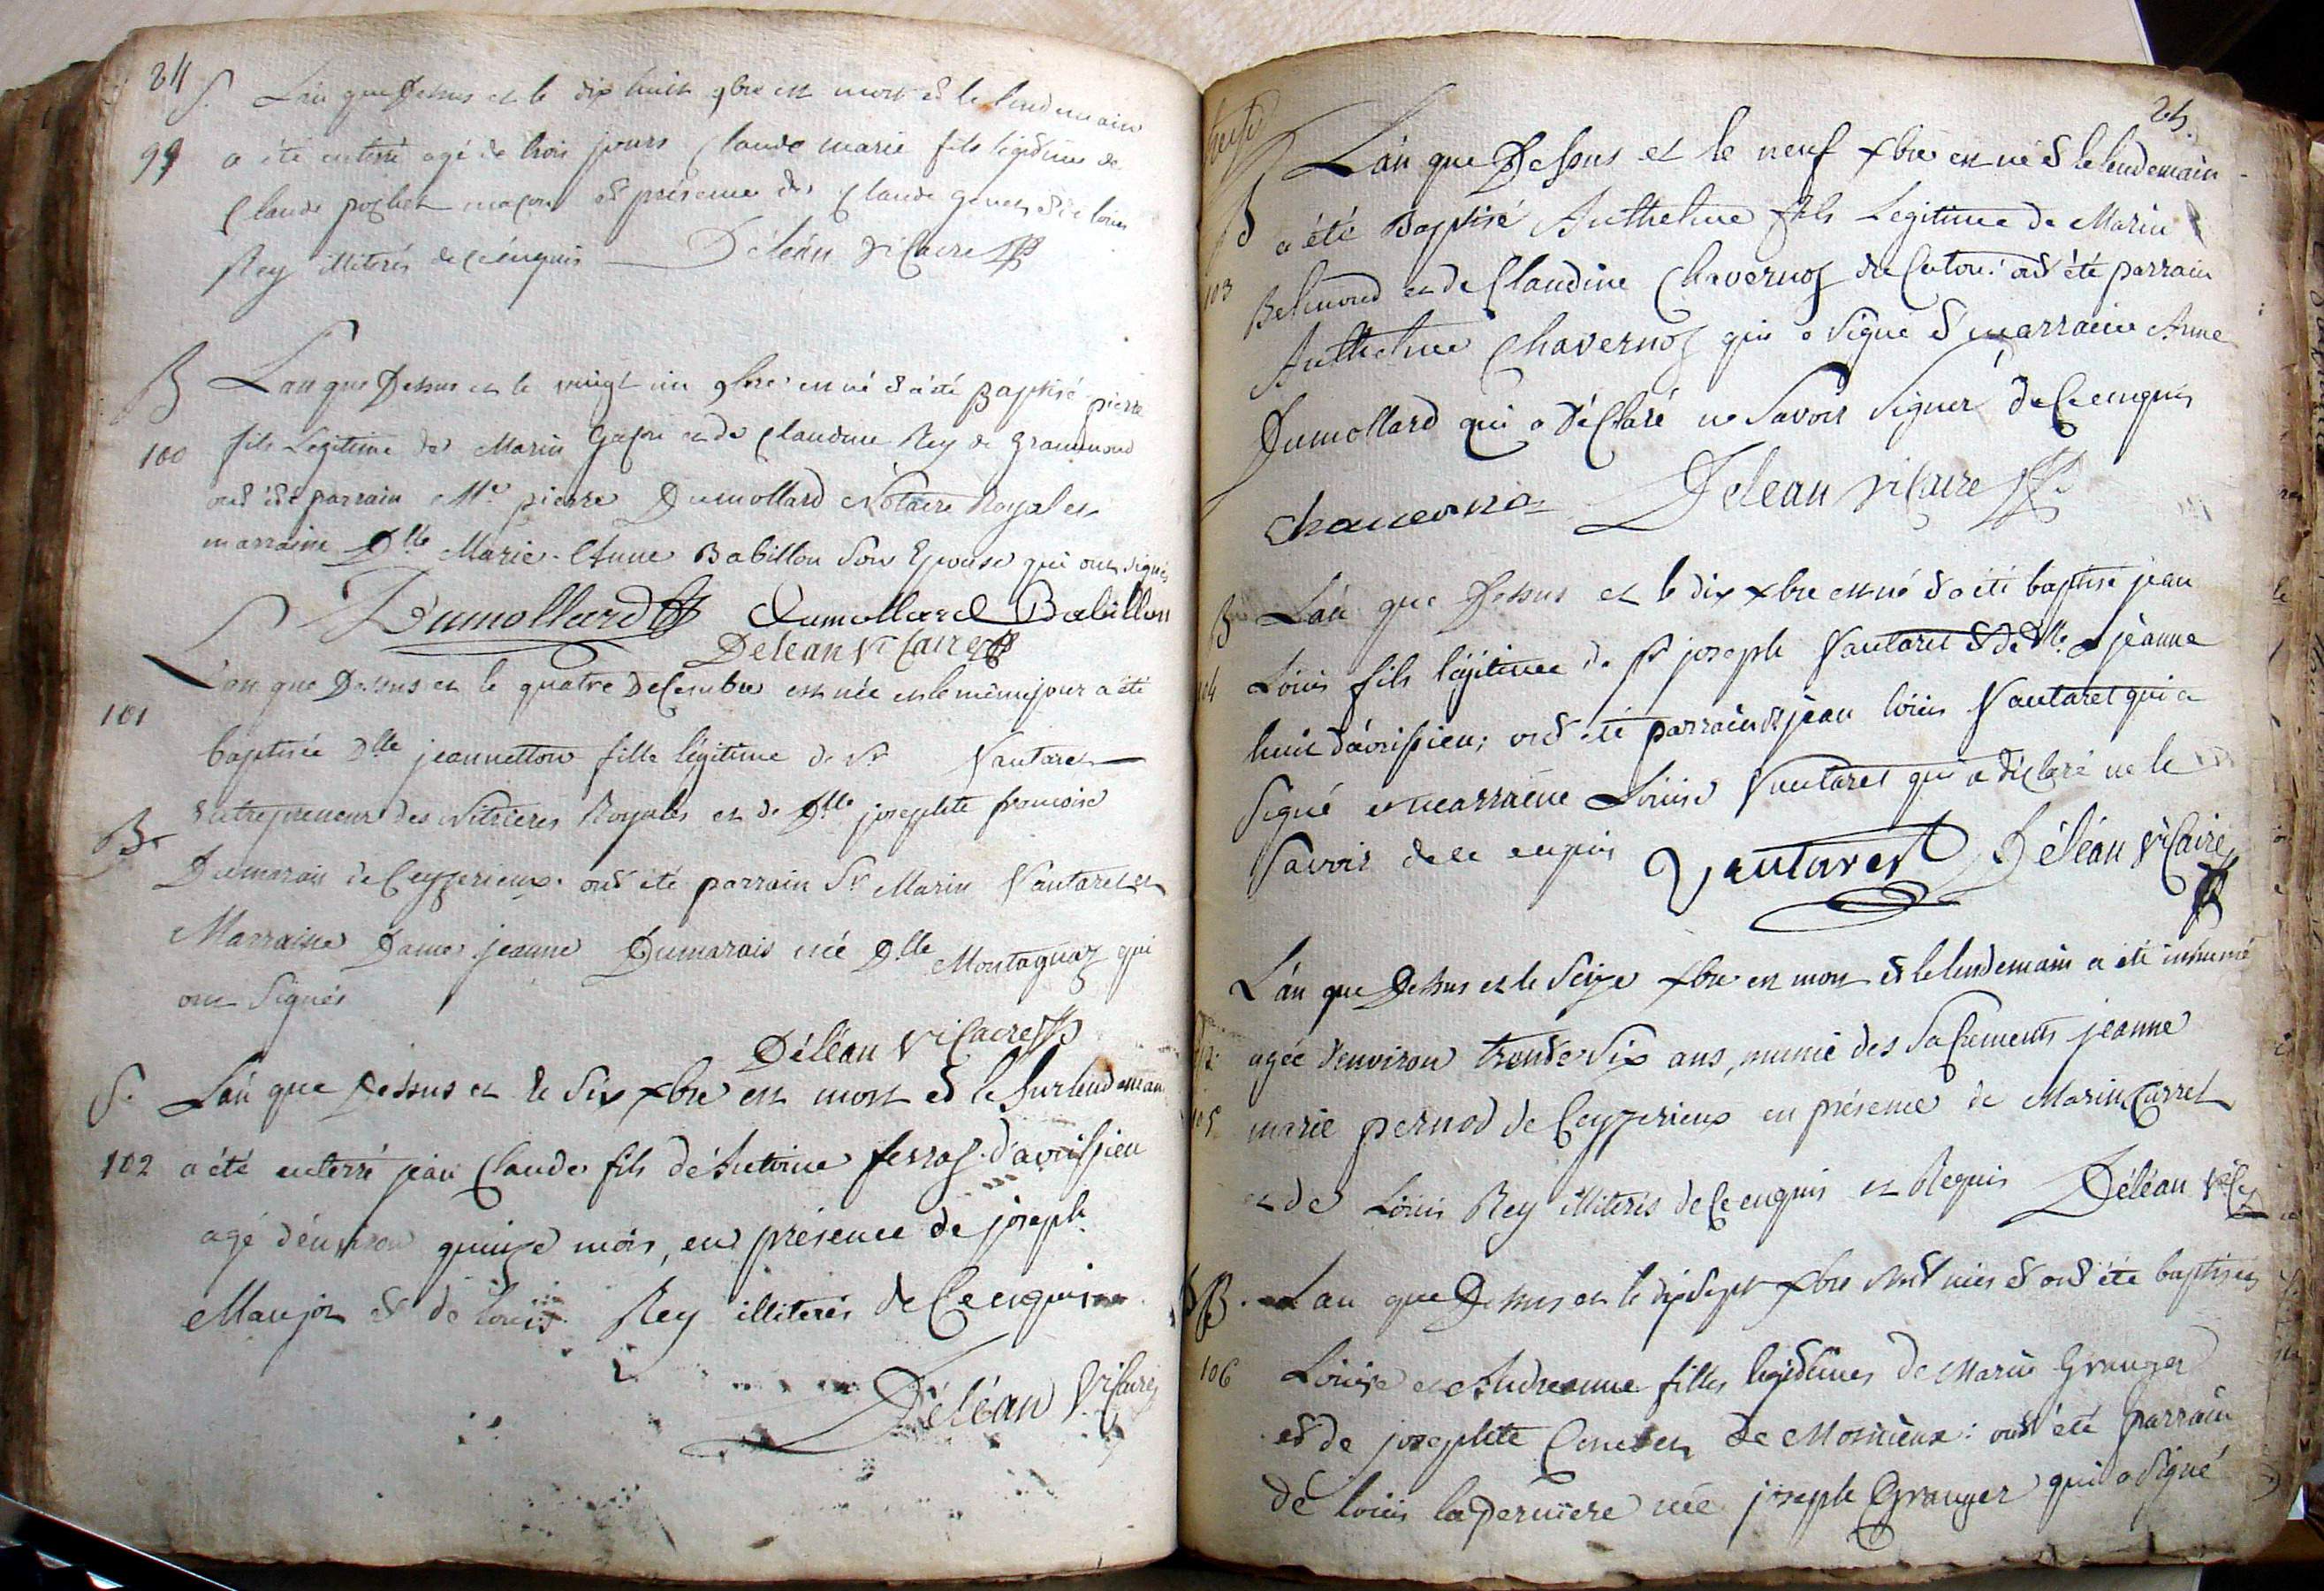 24
S. L'an que Dessus et le dix huit 9bre est mort et le lendemain
99 a été enterré agé de trois jours Claude marie fils légitime de
Claude pochet maçon en présence de Claude et de louis
Rey illiterés de ce énquis Déléan Vicaire
B L'an que Dessus et le vingt un 9bre est né et a été Baptisé pierre
100 fils Légitime de Marin et de Claudine Rey de Grammond
ont été parrain Me pierre Dumollard Notaire Royal et
marraine Dlle Marie-Anne Babillon Son Epouse qui ont signés
Dumollard Dumollard Babillon
Délean Vicaire
L'an que Dessus et le quatre Decembre est née et le même jour a été
101
baptisée Dlle jeannetton fille légitime de Sr Vautaret
Entrepreneur des Nitrieres Royales et de Dlle josephte francoise
B
Dumarais de Ceyzerieux. ont été parrain Sr Marin Vautaret et
Marraine Dame jeanne Dumarais née Dlle Montagnaz qui
ont Signés
Déléan Vicaire
S. L'an que Dessus et le Six xbre est mort et le Surlendemain
102 a été enterré jean Claude fils d'Antoine ferraz d'avrissieu
agé d'environ quinze mois, en présence de joseph
Maujot et de louis Rey illiterés de Ce enquis
Déléan Vicaire
25.
L'an que Dessus et le neuf xbre est né et le lendemain
B a été Baptisé Anthelme fils Legitime de Marin
103 Belmond et de Claudine Chavernoz ont été parrain
Anthelme Chavernoz qui a Signé et marraine Anne
Dumollard qui a Déclaré ne Savoir Signer de Ce enquis
Délean Vicaire
B L'an que Dessus et le dix xbre est né et a été baptisé jean
104 Louis fils légitime de Sr joseph Vautaret et de Dlle jeanne
huit d'avrissieu; ont été parrain Sr jean louis Vautaret qui a
Signé et marraine Louise Vautaret qui a déclaré ne le
Savoir de ce enquis Vautaret Déléan Vicaire
L'an que Dessus et le Seize xbre est mort et le lendemain a été inhumé
agée d'environ trente Six ans, munie des Sacrements jeanne
105 marie pernod de Ceyzerieux en présence de Marin Carret
et de Louis Rey illiterés de Ce enquis et Requis Déléan
B. L'an que Dessus et le dix Sept xbre sont nées et ont été baptisées
106 Louise et Andreanne filles légitimes de Marin Granger
et de josephte de Morieux: ont été parrain
de louis la derniere née joseph Granger qui a Signé